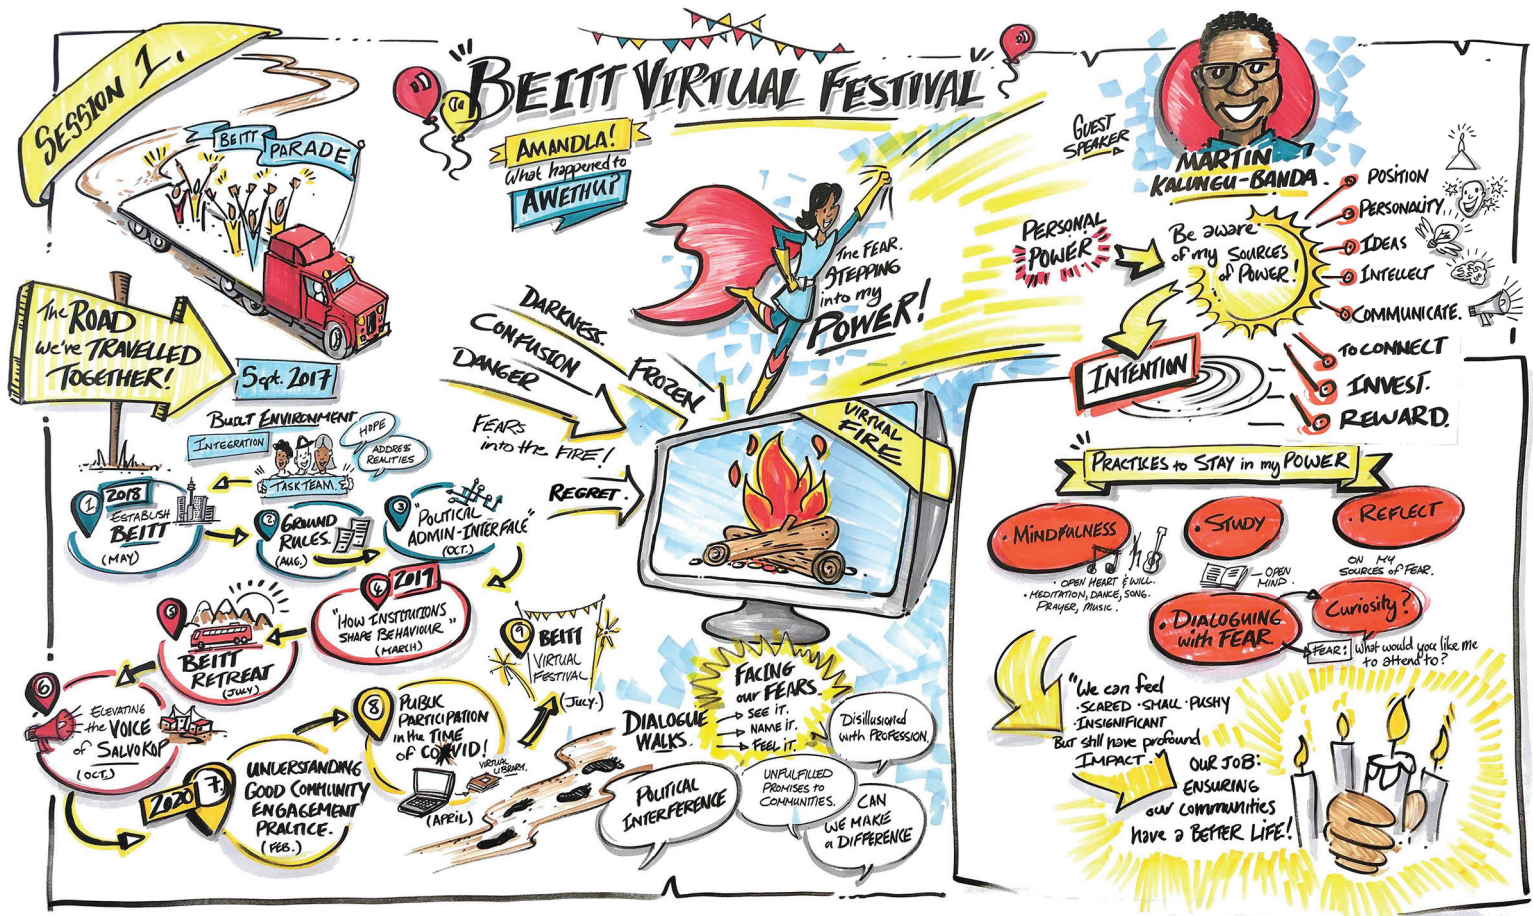 SESSION 1.
BEITT VIRTUAL FESTIVAL
AMANDLA!
what happened to
AWETHU?
BEITT PARADE
The ROAD
We've TRAVELLED
TOGETHER!
Sept. 2017
BUILT ENVIRONMENT
INTEGRATION
TASK TEAM.
HOPE
ADDRESS
REALITIES
1
2018
ESTABLISH
BEITT
(MAY)
2
GROUND
RULES.
(AUG.)
3
"POLITICAL
ADMIN-INTERFACE"
(OCT.)
4
2019
"HOW INSTITUTIONS
SHAPE BEHAVIOUR."
(MARCH)
5
BEITT
RETREAT
(JULY)
6
ELEVATING
the VOICE
of SALVOKOP
(OCT.)
2020
7
UNDERSTANDING
GOOD COMMUNITY
ENGAGEMENT
PRACTICE.
(FEB.)
8
PUBLIC
PARTICIPATION
in the TIME
of COVID!
VIRTUAL
LIBRARY.
(APRIL)
9
BEITT
VIRTUAL
FESTIVAL
(JULY.)
The FEAR.
STEPPING
into my
POWER!
DARKNESS
CONFUSION
DANGER
FROZEN
FEARS
into the FIRE!
REGRET.
VIRTUAL
FIRE
FACING
our FEARS.
SEE IT.
NAME IT.
FEEL IT.
DIALOGUE
WALKS.
POLITICAL
INTERFERENCE
UNFULFILLED
PROMISES to
COMMUNITIES.
Disillusioned
with PROFESSION.
CAN
WE MAKE
a DIFFERENCE
GUEST
SPEAKER
MARTIN
KALUNGU-BANDA.
PERSONAL
POWER
Be aware
of my SOURCES
of POWER!
POSITION
PERSONALITY
IDEAS
INTELLECT
COMMUNICATE.
INTENTION
TO CONNECT
INVEST.
REWARD.
PRACTICES to STAY in my POWER
• MINDFULNESS
• OPEN HEART & WILL.
• MEDITATION, DANCE, SONG.
PRAYER, MUSIC.
• STUDY
- OPEN
MIND.
• REFLECT
ON MY
SOURCES of FEAR.
• DIALOGUING
with FEAR
Curiosity?
FEAR:
What would you like me
to attend to?
"We can feel
• SCARED • SMALL • PUSHY
• INSIGNIFICANT
But still have profound
IMPACT."
OUR JOB:
ENSURING
our communities
have a BETTER LIFE!